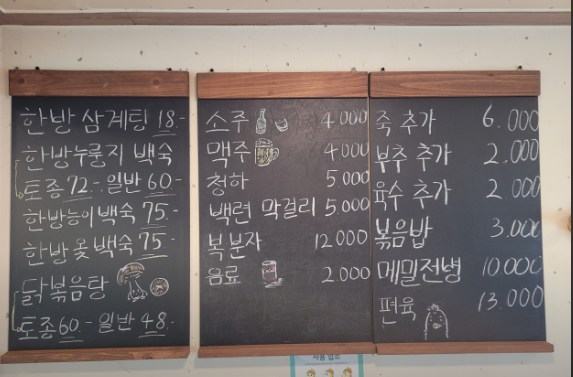 한방 삼계탕 18.-
한방누룽지 백숙
토종 72.- 일반 60.-
한방능이백숙 75.-
한방 옻 백숙 75.-
닭볶음탕
토종 60.- 일반 48.-
소주 4000
맥주 4000
청하 5.000
백련 막걸리 5.000
복분자 12000
음료 2.000
죽 추가 6.000
부추 추가 2.000
육수 추가 2 000
볶음밥 3.000
메밀전병 10.000
편육 13.000